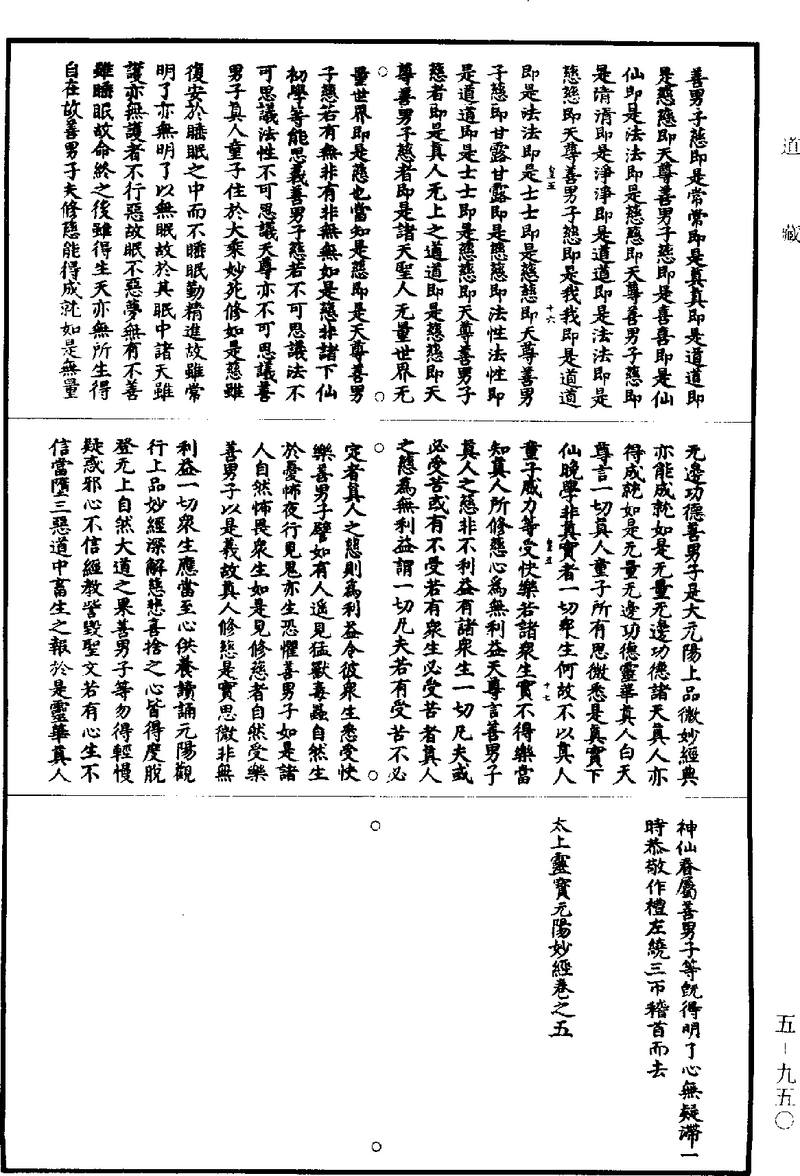 道藏
善男子慈即是常常即是真真即是道道即
是慈慈即天尊善男子慈即是喜喜即是仙
仙即是法法即是慈慈即天尊善男子慈即
是清清即是淨淨即是道道即是法法即是
慈慈即天尊善男子慈即是我我即是道道
皇五 十六
即是法法即是士士即是慈慈即天尊善男
子慈即甘露甘露即是慈慈即法性法性即
是道道即是士士即是慈慈即天尊善男子
慈者即是真人无上之道道即是慈慈即天
尊善男子慈者即是諸天聖人无量世界无
量世界即是慈也當知是慈即是天尊善男
子慈若有無非有非無無如是慈非諸下仙
初學等能思義善男子慈若不可思議法不
可思議法性不可思議天尊亦不可思議善
男子真人童子住於大乘妙死修如是慈雖
復安於睡眠之中而不睡眠勤精進故雖常
明了亦無明了以無眠故於其眠中諸天雖
護亦無護者不行惡故眠不惡夢無有不善
雖睡眠故命終之後雖得生天亦無所生得
自在故善男子夫修慈能得成就如是無量
无邊功德善男子是大元陽上品微妙經典
亦能成就如是无量无邊功德諸天真人亦
得成就如是无量无邊功德靈華真人白天
尊言一切真人童子所有思微悉是真實下
仙晚學非真實者一切衆生何故不以真人
皇五 十七
童子威力等受快樂若諸衆生實不得樂當
知真人所修慈心為無利益天尊言善男子
真人之慈非不利益有諸衆生一切凡夫或
必受苦或有不受若有衆生必受苦者真人
之慈為無利益謂一切凡夫若有受苦不必
定者真人之慈則為利益令彼衆生悉受快
樂善男子譬如有人遥見猛獸毒蟲自然生
於憂怖夜行見鬼亦生恐懼善男子如是諸
人自然怖畏衆生如是見修慈者自然受樂
善男子以是義故真人修慈是實思微非無
利益一切衆生應當至心供養讀誦元陽觀
行上品妙經深解慈悲喜捨之心皆得度脫
登无上自然大道之果善男子等勿得輕慢
疑惑邪心不信經教訾毀聖文若有心生不
信當墮三惡道中畜生之報於是靈華真人
神仙眷屬善男子等旣得明了心無疑滯一
時恭敬作禮左繞三帀稽首而去
太上靈寶元陽妙經卷之五
五－九五〇